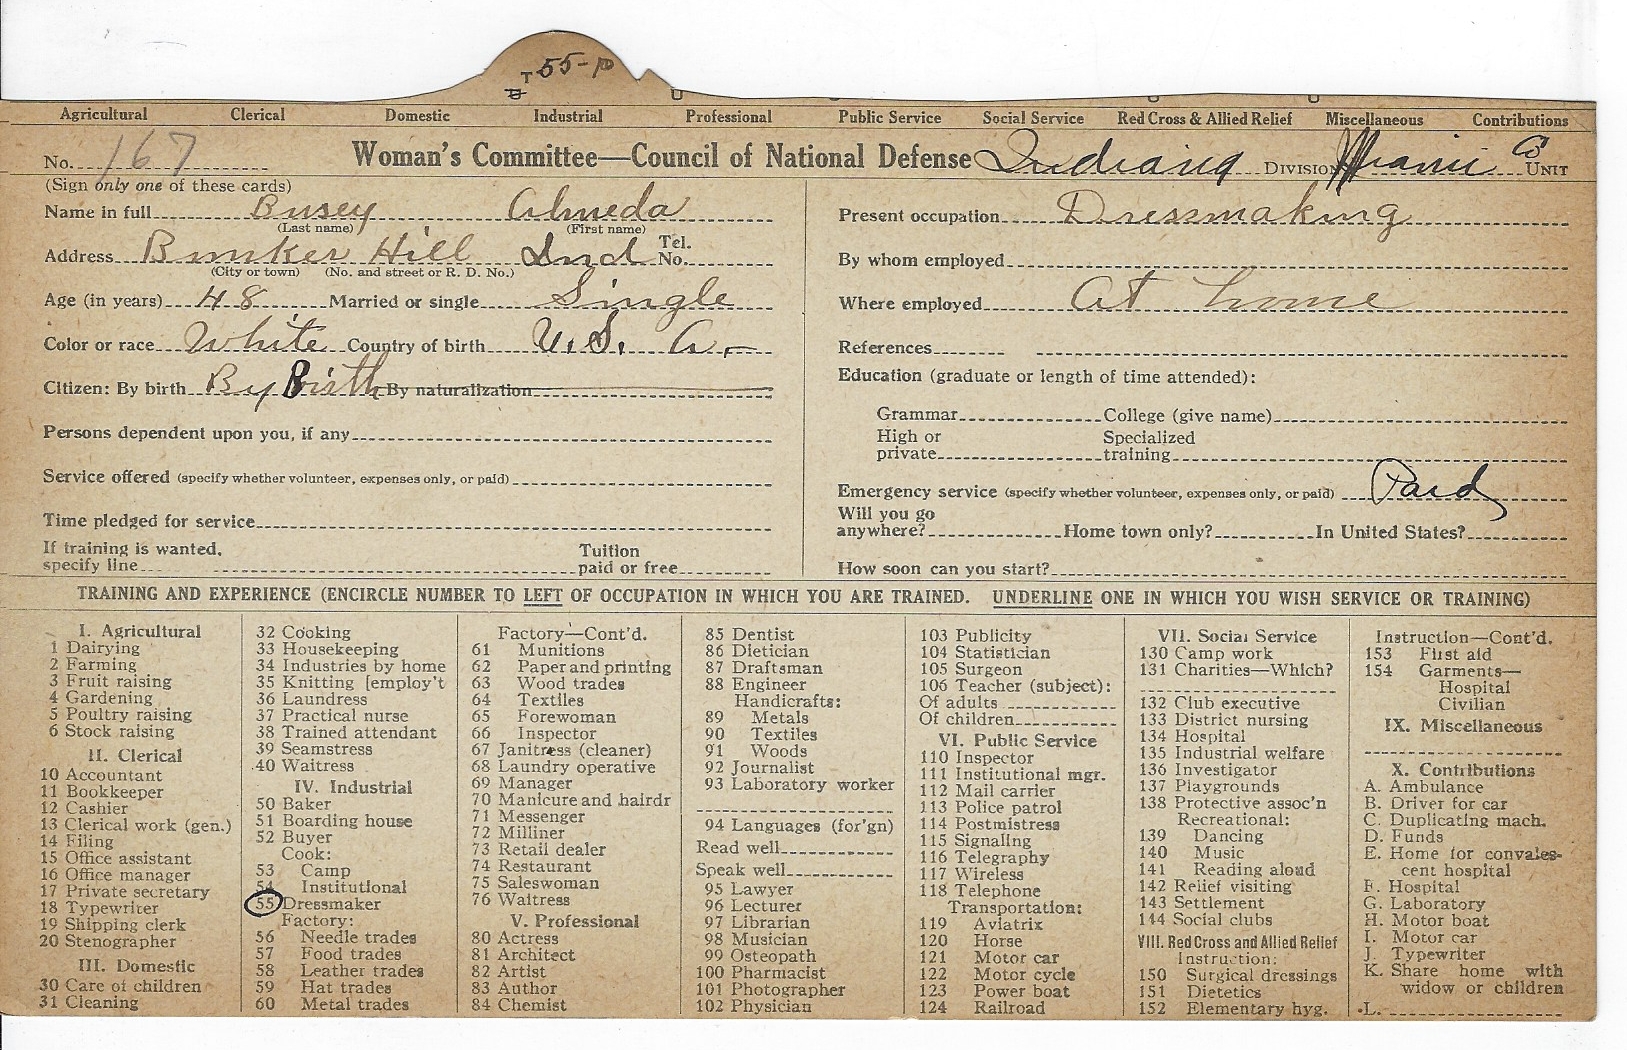 T 55-P
Agricultural Clerical Domestic Industrial Professional Public Service Social Service Red Cross & Allied Relief Miscellaneous Contributions
No. 167 Woman's Committee—Council of National Defense Indiana DIVISION Miami Co UNIT
(Sign only one of these cards)
Name in full Busey Almeda
(Last name) (First name)
Address Bunker Hill Ind Tel. No.
(City or town) (No. and street or R. D. No.)
Age (in years) 48 Married or single Single
Color or race White Country of birth U.S. A.
Citizen: By birth By Birth By naturalization
Persons dependent upon you, if any
Service offered (specify whether volunteer, expenses only, or paid)
Time pledged for service
If training is wanted, specify line Tuition paid or free
Present occupation Dressmaking
By whom employed
Where employed At home
References
Education (graduate or length of time attended):
Grammar College (give name)
High or private Specialized training
Emergency service (specify whether volunteer, expenses only, or paid) Paid
Will you go anywhere? Home town only? In United States?
How soon can you start?
TRAINING AND EXPERIENCE (ENCIRCLE NUMBER TO LEFT OF OCCUPATION IN WHICH YOU ARE TRAINED. UNDERLINE ONE IN WHICH YOU WISH SERVICE OR TRAINING)
I. Agricultural
1 Dairying
2 Farming
3 Fruit raising
4 Gardening
5 Poultry raising
6 Stock raising
II. Clerical
10 Accountant
11 Bookkeeper
12 Cashier
13 Clerical work (gen.)
14 Filing
15 Office assistant
16 Office manager
17 Private secretary
18 Typewriter
19 Shipping clerk
20 Stenographer
III. Domestic
30 Care of children
31 Cleaning
32 Cooking
33 Housekeeping
34 Industries by home
35 Knitting [employ't
36 Laundress
37 Practical nurse
38 Trained attendant
39 Seamstress
40 Waitress
IV. Industrial
50 Baker
51 Boarding house
52 Buyer
Cook:
53 Camp
54 Institutional
55 Dressmaker
Factory:
56 Needle trades
57 Food trades
58 Leather trades
59 Hat trades
60 Metal trades
Factory—Cont'd.
61 Munitions
62 Paper and printing
63 Wood trades
64 Textiles
65 Forewoman
66 Inspector
67 Janitress (cleaner)
68 Laundry operative
69 Manager
70 Manicure and hairdr
71 Messenger
72 Milliner
73 Retail dealer
74 Restaurant
75 Saleswoman
76 Waitress
V. Professional
80 Actress
81 Architect
82 Artist
83 Author
84 Chemist
85 Dentist
86 Dietician
87 Draftsman
88 Engineer
Handicrafts:
89 Metals
90 Textiles
91 Woods
92 Journalist
93 Laboratory worker
94 Languages (for'gn)
Read well
Speak well
95 Lawyer
96 Lecturer
97 Librarian
98 Musician
99 Osteopath
100 Pharmacist
101 Photographer
102 Physician
103 Publicity
104 Statistician
105 Surgeon
106 Teacher (subject):
Of adults
Of children
VI. Public Service
110 Inspector
111 Institutional mgr.
112 Mail carrier
113 Police patrol
114 Postmistress
115 Signaling
116 Telegraphy
117 Wireless
118 Telephone
Transportation:
119 Aviatrix
120 Horse
121 Motor car
122 Motor cycle
123 Power boat
124 Railroad
VII. Social Service
130 Camp work
131 Charities—Which?
132 Club executive
133 District nursing
134 Hospital
135 Industrial welfare
136 Investigator
137 Playgrounds
138 Protective assoc'n
Recreational:
139 Dancing
140 Music
141 Reading aloud
142 Relief visiting
143 Settlement
144 Social clubs
VIII. Red Cross and Allied Relief
Instruction:
150 Surgical dressings
151 Dietetics
152 Elementary hyg.
Instruction—Cont'd.
153 First aid
154 Garments—
Hospital
Civilian
IX. Miscellaneous
X. Contributions
A. Ambulance
B. Driver for car
C. Duplicating mach.
D. Funds
E. Home for convales-
cent hospital
F. Hospital
G. Laboratory
H. Motor boat
I. Motor car
J. Typewriter
K. Share home with
widow or children
L.